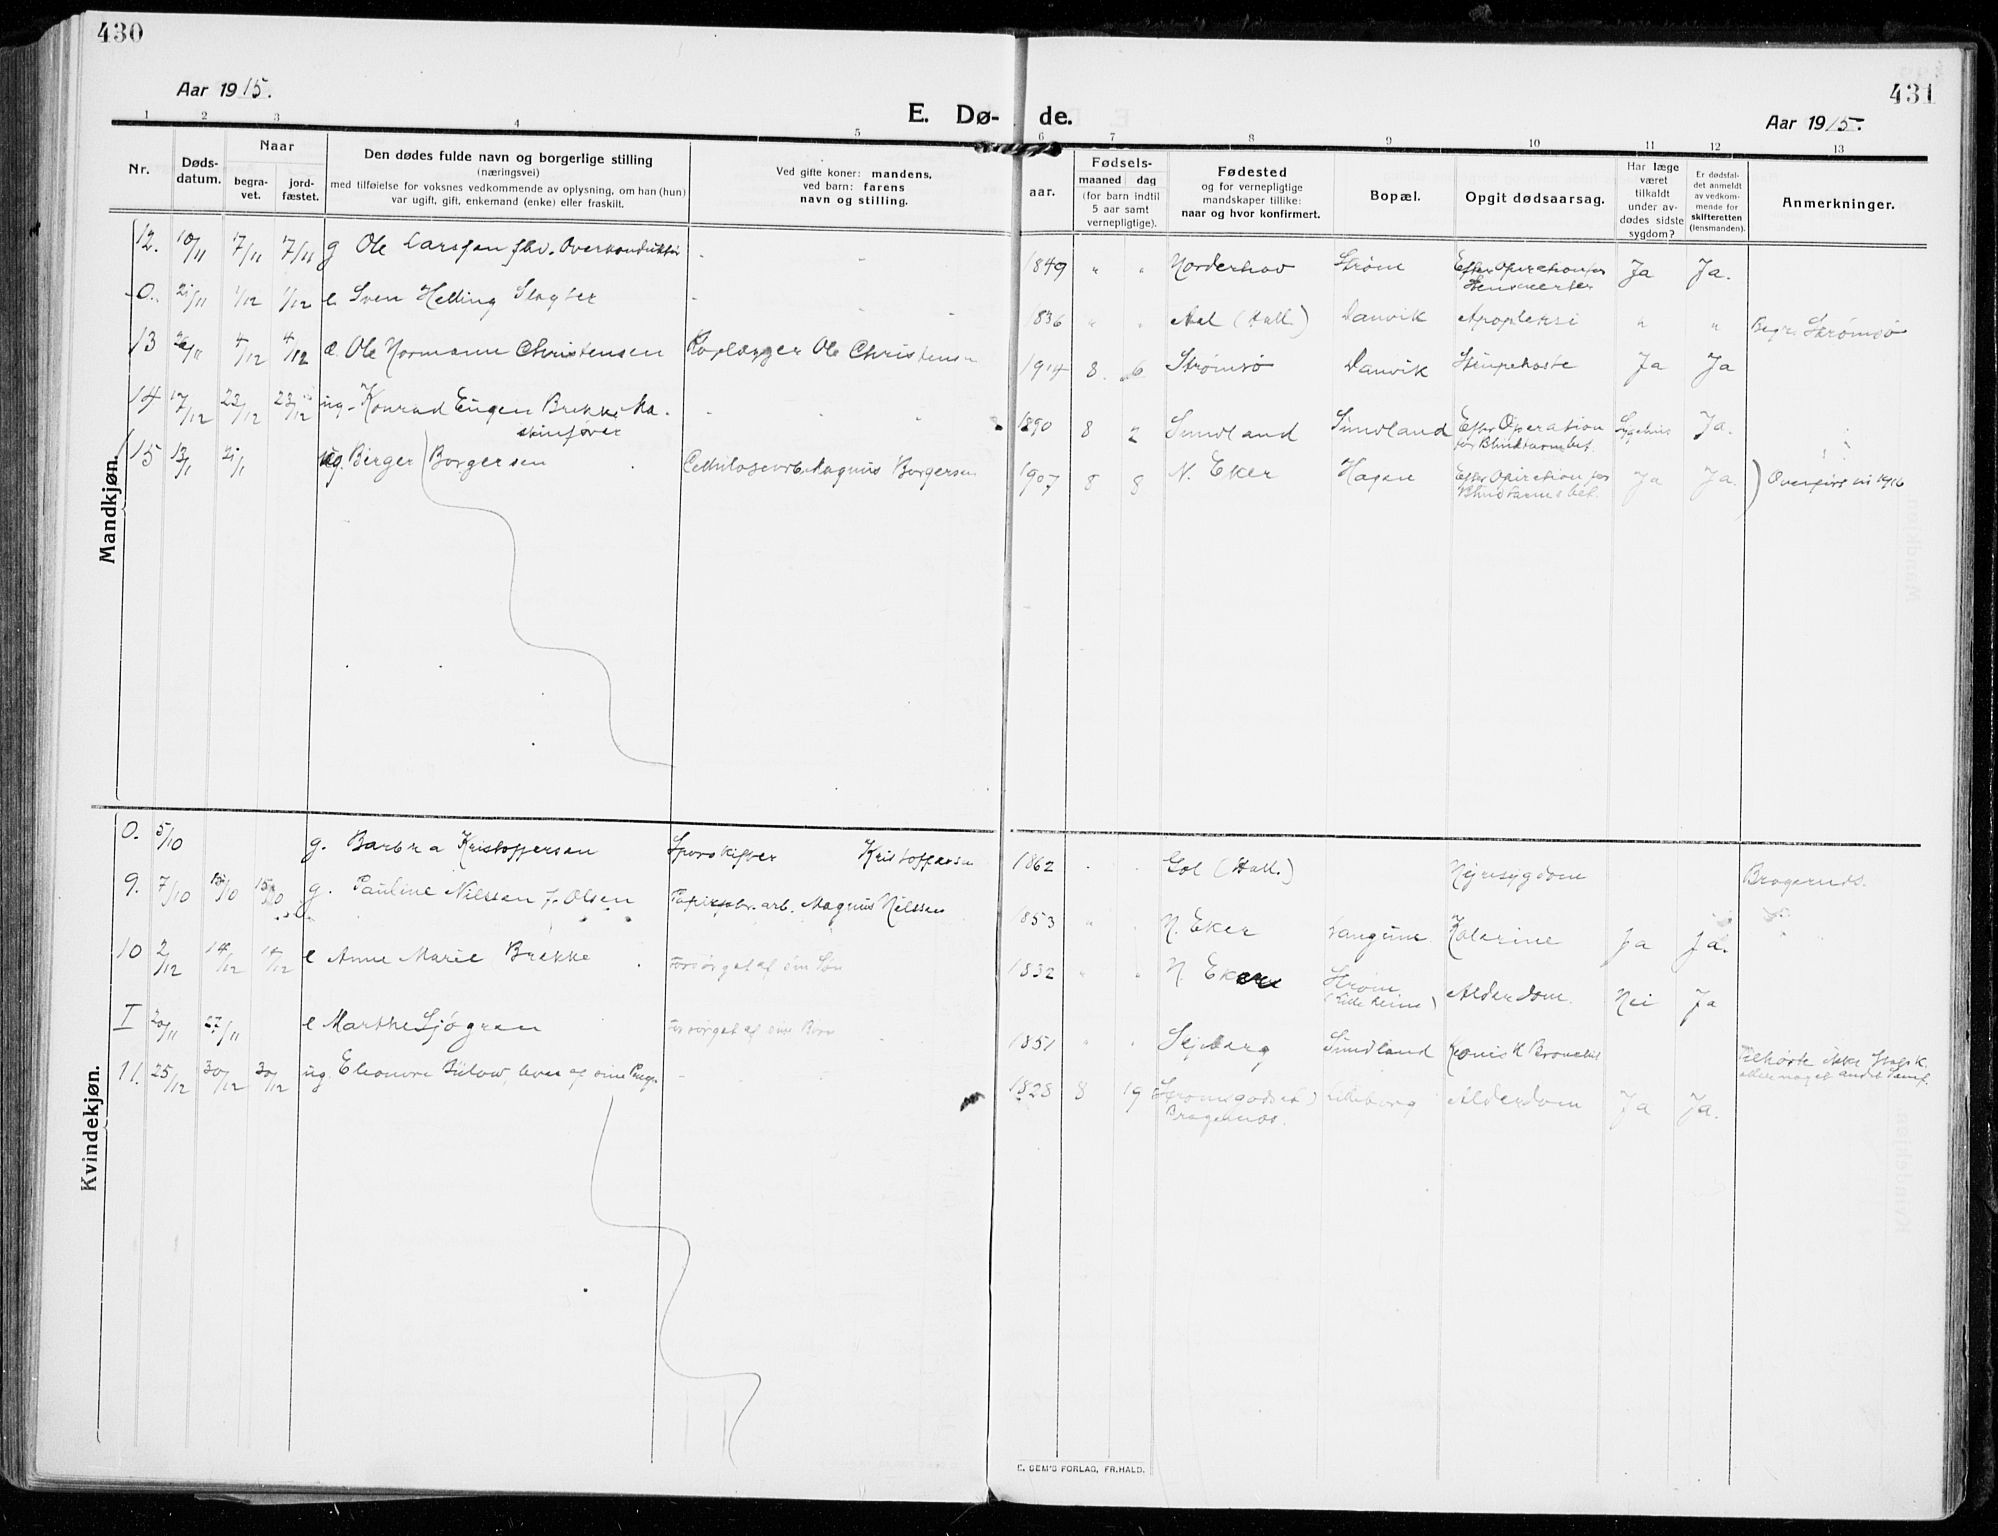 430
431
Aar 1915.
Aar 1915.
E. Dø- de.
1 2 3 4 5 6 7 8 9 10 11 12 13
Nr.
Døds-
datum.
Naar
begra-
vet.
jord-
fæstet.
Den dødes fulde navn og borgerlige stilling
(næringsvei)
med tilføielse for voksnes vedkommende av oplysning, om han (hun)
var ugift, gift, enkemand (enke) eller fraskilt.
Ved gifte koner: mandens,
ved barn: farens
navn og stilling.
aar.
Fødsels-
maaned dag
(for barn indtil
5 aar samt
vernepligtige).
Fødested
og for vernepligtige
mandskaper tillike:
naar og hvor konfirmert.
Bopæl.
Opgit dødsaarsag.
Har læge
været
tilkaldt
under av-
dødes sidste
sygdom?
Er dødsfal-
det anmeldt
av vedkom-
mende for
skifteretten
(lensmanden).
Anmerkninger.
Mandkjøn.
12. 10/11 17/11 17/11 g Ole Larssen fhv. Overkonduktør - 1849 " " Norderhov Strøm Efter Operation for Ja Ja.
0. 21/11 1/12 1/12 e. Sven Helling Slagter - 1836 " " Aal (Hall.) Danvik Apopleksi " " Begr. Strømsø
13 26/11 4/12 4/12 æ. Ole Normann Christensen Ole Christensen 1914 8. 6. Strømsø Danvik Ja Ja
14 17/12 23/12 23/12 ug. Konrad Eugen Brekke Ma- - 1890 8 2 Sundland Sundland Efter Operation Sygehus Ja.
skinfører for Blindtarmbet.
15 13/1 21/1 ug. Birger Borgersen Cellulosearb. Magnus Borgersen 1907 8 8 N. Eker Hagan Efter Operation for Ja Ja. Overført til 1916
Blindtarmsbet.
Kvindekjøn.
0. 5/10 g. Barbra Kristoffersen Sporskifter Kristoffersen 1862 Gol (Hall.) Nyresygdom Bragernes.
9. 7/10 13/10 15/10 g. Pauline Nilssen f. Olsen Papirfabr. arb. Magnus Nilssen 1853 " " N. Eker Ja Ja.
10 2/12 14/12 14/12 e Anne Marie Brekke Forsørget af sin Søn 1832 " " N. Eker Strøm Alderdom. Nei Ja
I 20/11 27/11 e Marthe Sjøgren Forsørget af sine Børn 1851 " " Skjeberg Sundland Kronisk Bronchit Tilhørte ikke Statsk.
eller noget andet Samf.
11. 25/12 30/12 30/12 ug. Eleonore Bülow, lever af sine Penge - 1828 8 19 (Strømsgodset) Lilleborg Alderdom Ja Ja.
Bragernes.
E. SEM'S FORLAG, FR.HALD.